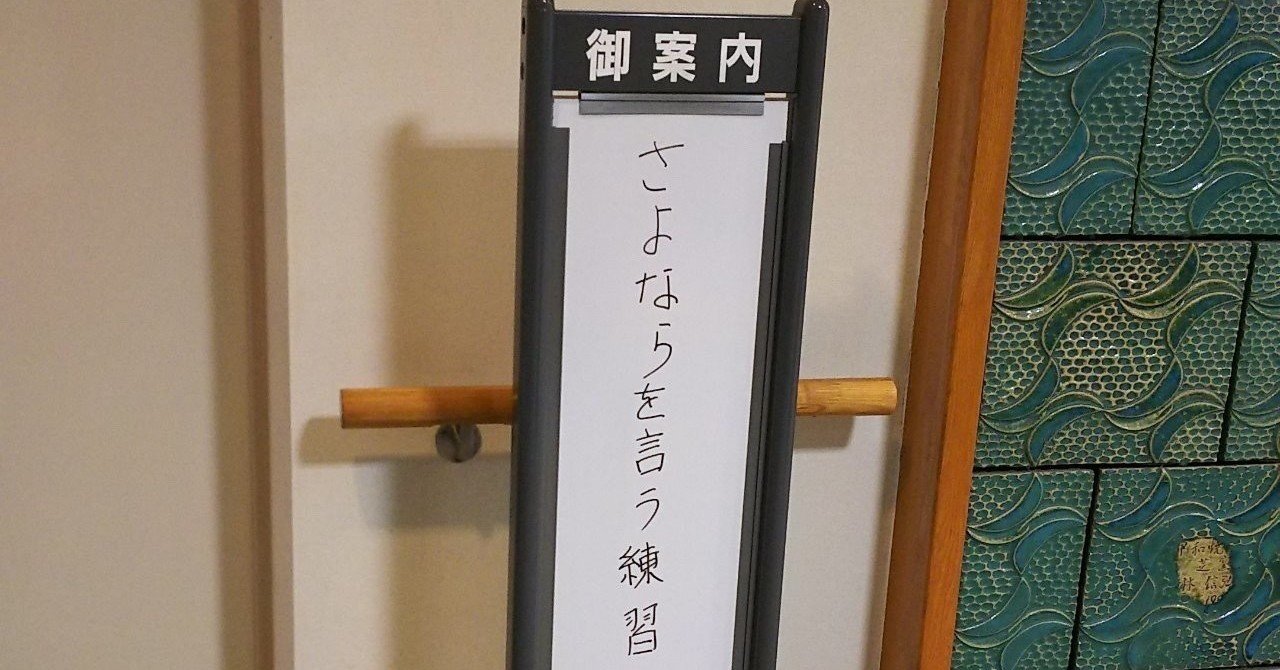 御案内
さよならを言う練習